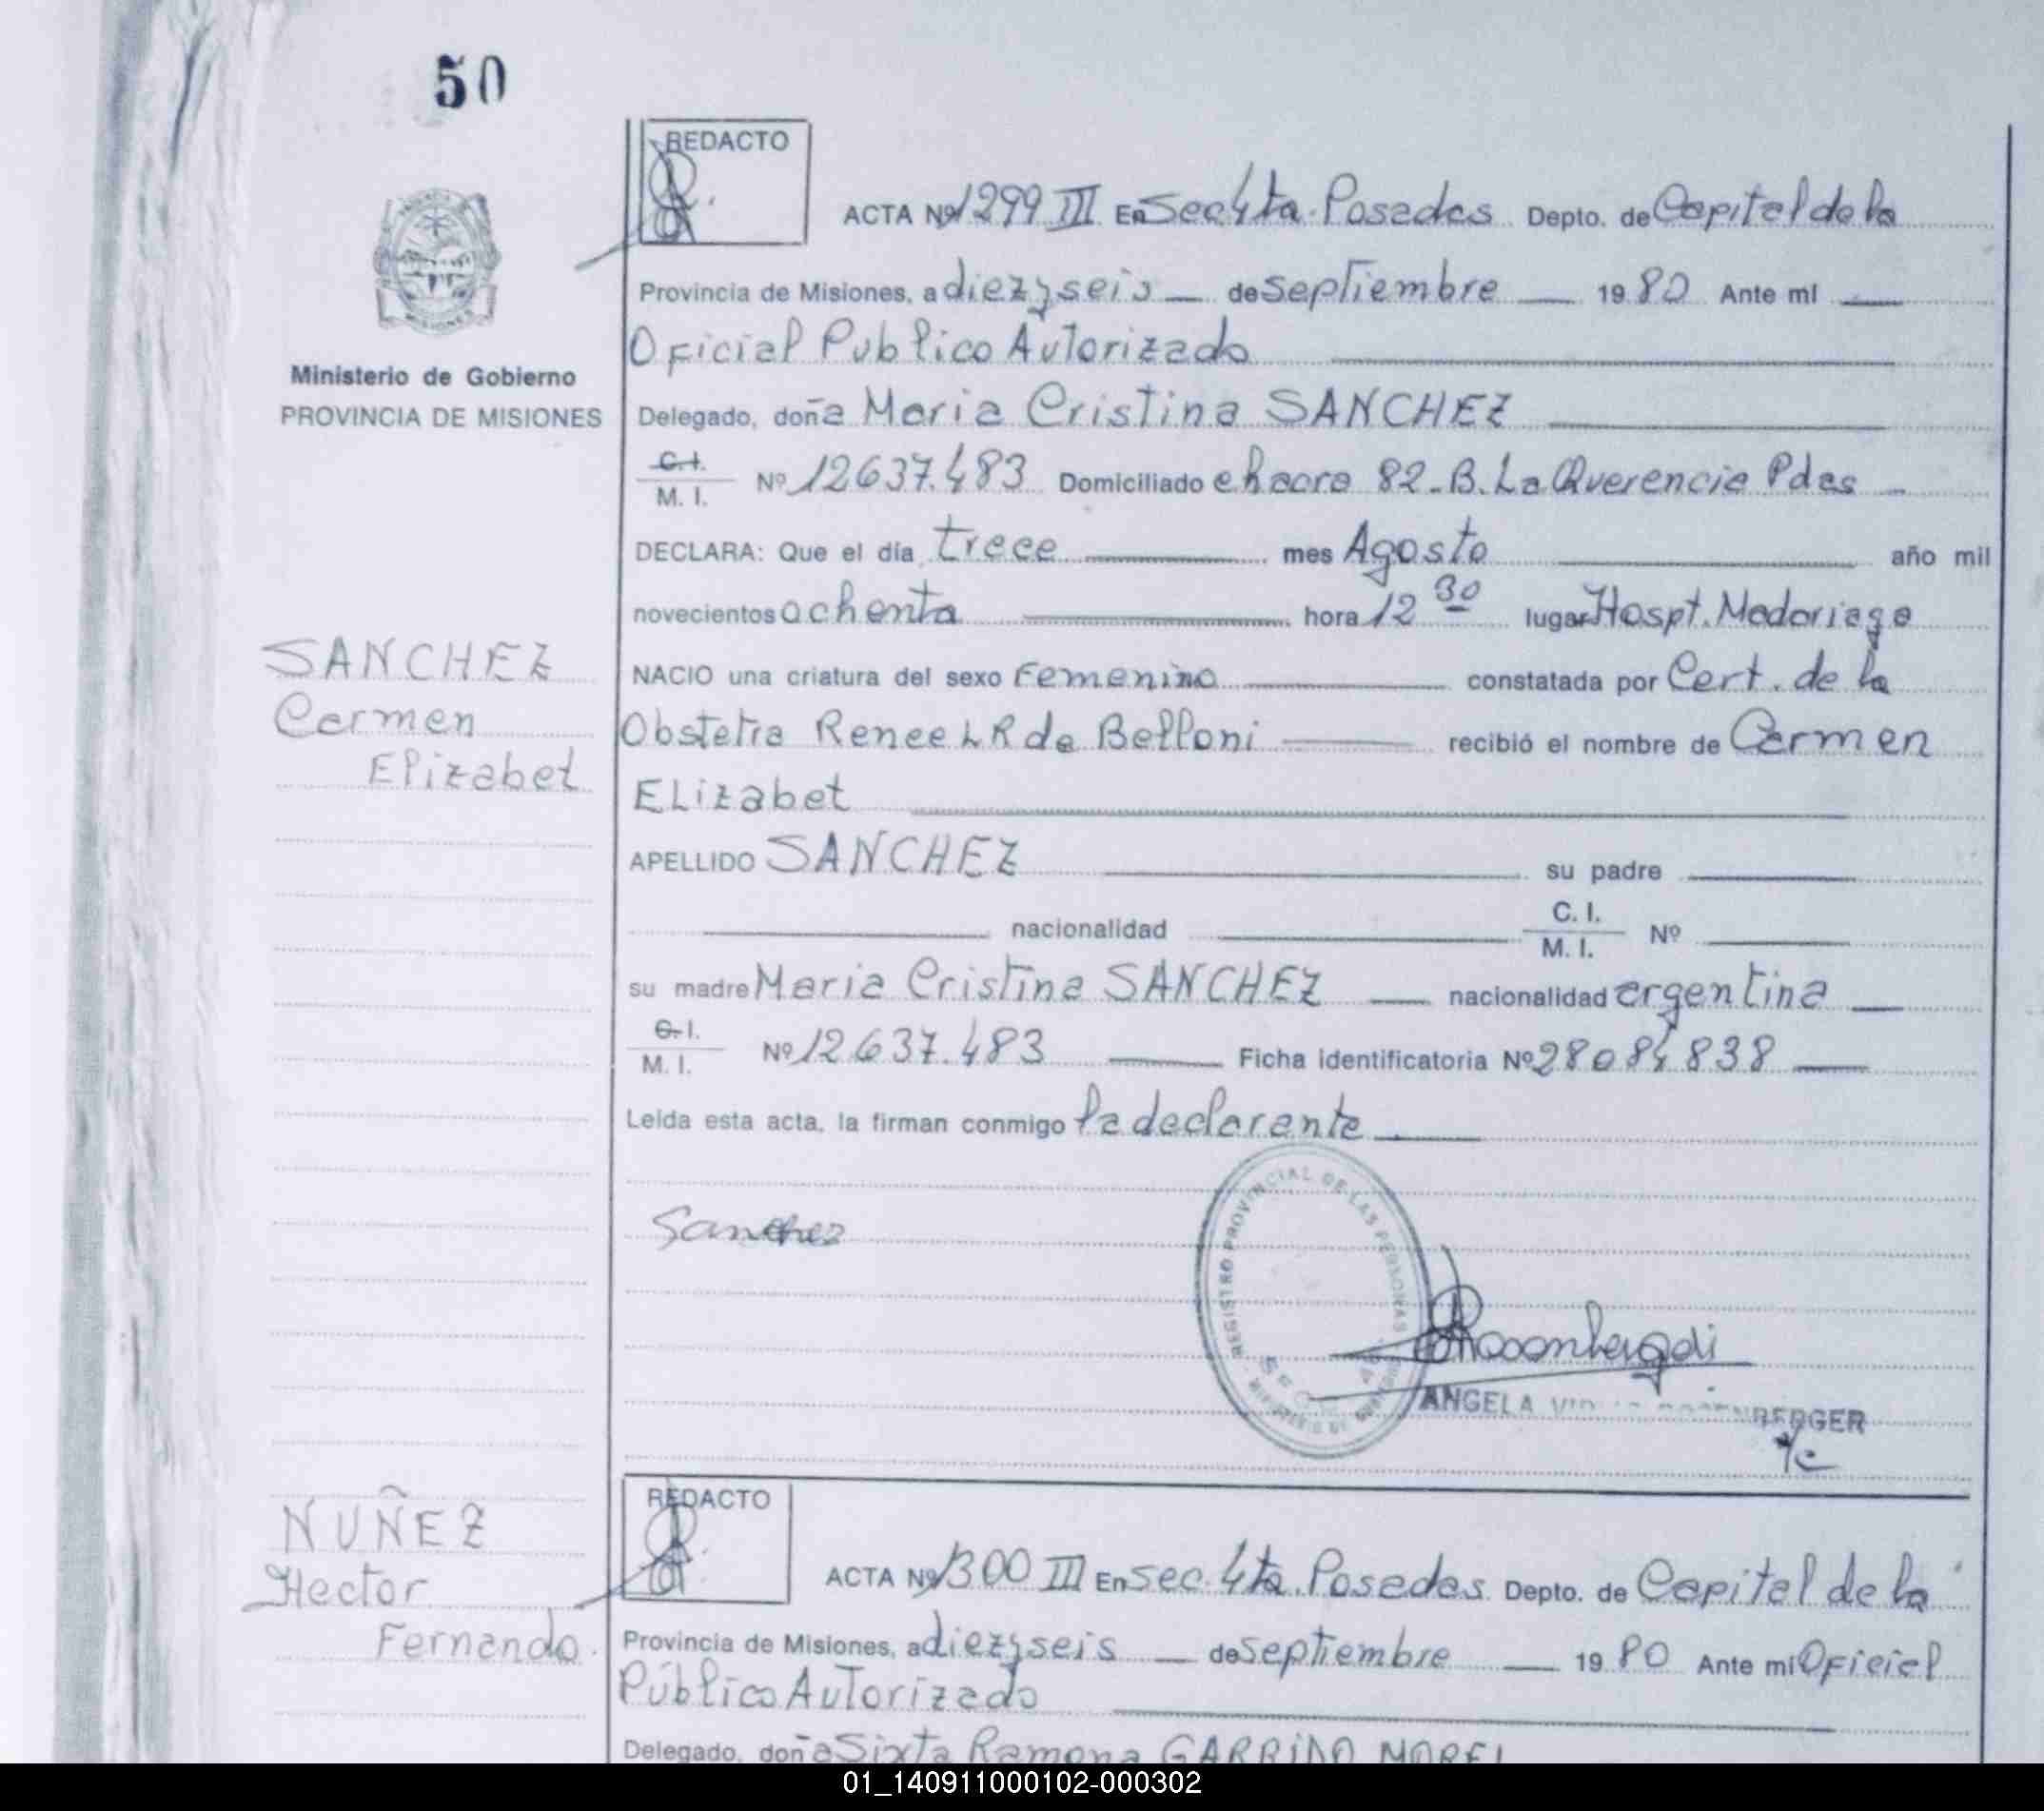 50
REDACTO
ACTA Nº 1299 III En Sec 4ta. Posadas Depto. de Capital de la
Provincia de Misiones, a diez y seis de septiembre 1980 Ante mi
Oficial Publico Autorizado
Ministerio de Gobierno
PROVINCIA DE MISIONES
Delegado, doña Maria Cristina SANCHEZ
C.I.
M. I. Nº 12637.483 Domiciliado chacra 82-B. La Querencia Pdas
DECLARA: Que el día trece mes Agosto año mil
novecientos ochenta hora 12 30 lugar Hospt. Madariaga
SANCHEZ
Carmen
Elizabet
NACIO una criatura del sexo Femenino constatada por Cert. de la
Obstetra Renee L R de Belloni recibió el nombre de Carmen
ELizabet
APELLIDO SANCHEZ su padre
nacionalidad C. I.
M. I. Nº
su madre Maria Cristina SANCHEZ nacionalidad argentina
C.I.
M. I. Nº 12.637.483 Ficha identificatoria Nº 28084838
Leída esta acta, la firman conmigo la declarante
Sanchez
REGISTRO PROVINCIAL DE LAS PERSONAS
ANGELA
NUÑEZ
Hector
Fernando
REDACTO
ACTA Nº 1300 III En Sec. 4ta. Posadas Depto. de Capital de la
Provincia de Misiones, a diez y seis de septiembre 1980 Ante mi Oficial
Público Autorizado
Delegado, doña Sixta Ramona GARRIDO MOREL
01_140911000102-000302